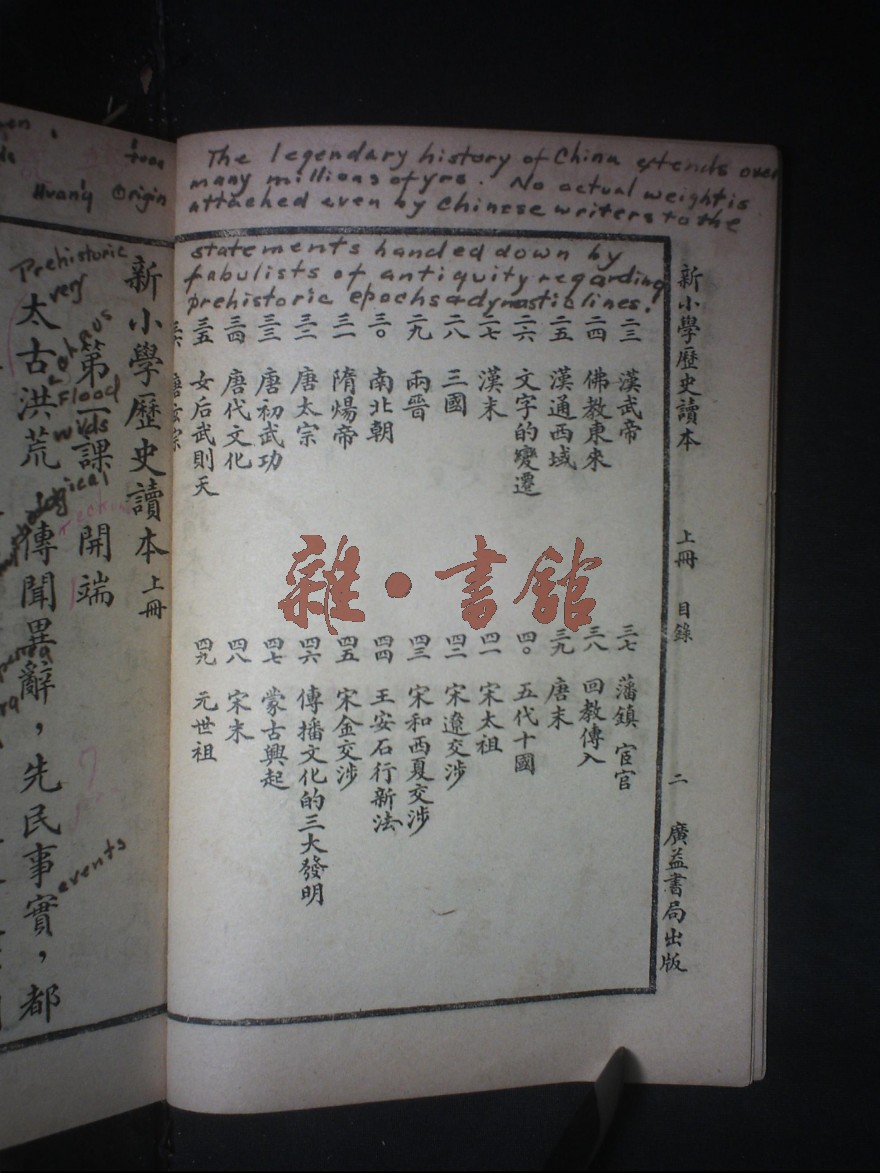 The legendary history of China extends over
many millions of yrs. No actual weight is
attached even by Chinese writers to the
statements handed down by
fabulists of antiquity regarding
prehistoric epochs & dynastic lines.
新小學歷史讀本 上冊 目錄 二 廣益書局出版
二三 漢武帝
二四 佛教東來
二五 漢通西域
二六 文字的變遷
二七 漢末
二八 三國
二九 兩晉
三〇 南北朝
三一 隋煬帝
三二 唐太宗
三三 唐初武功
三四 唐代文化
三五 女后武則天
三六 唐玄宗
三七 藩鎮 宦官
三八 回教傳入
三九 唐末
四〇 五代十國
四一 宋太祖
四二 宋遼交涉
四三 宋和西夏交涉
四四 王安石行新法
四五 宋金交涉
四六 傳播文化的三大發明
四七 蒙古興起
四八 宋末
四九 元世祖
雜·書館
Huang Origin
新小學歷史讀本 上冊
第一課 開端
Prehistoric
very
Flood
wilds
太古洪荒 傳聞異辭，先民事實，都
events